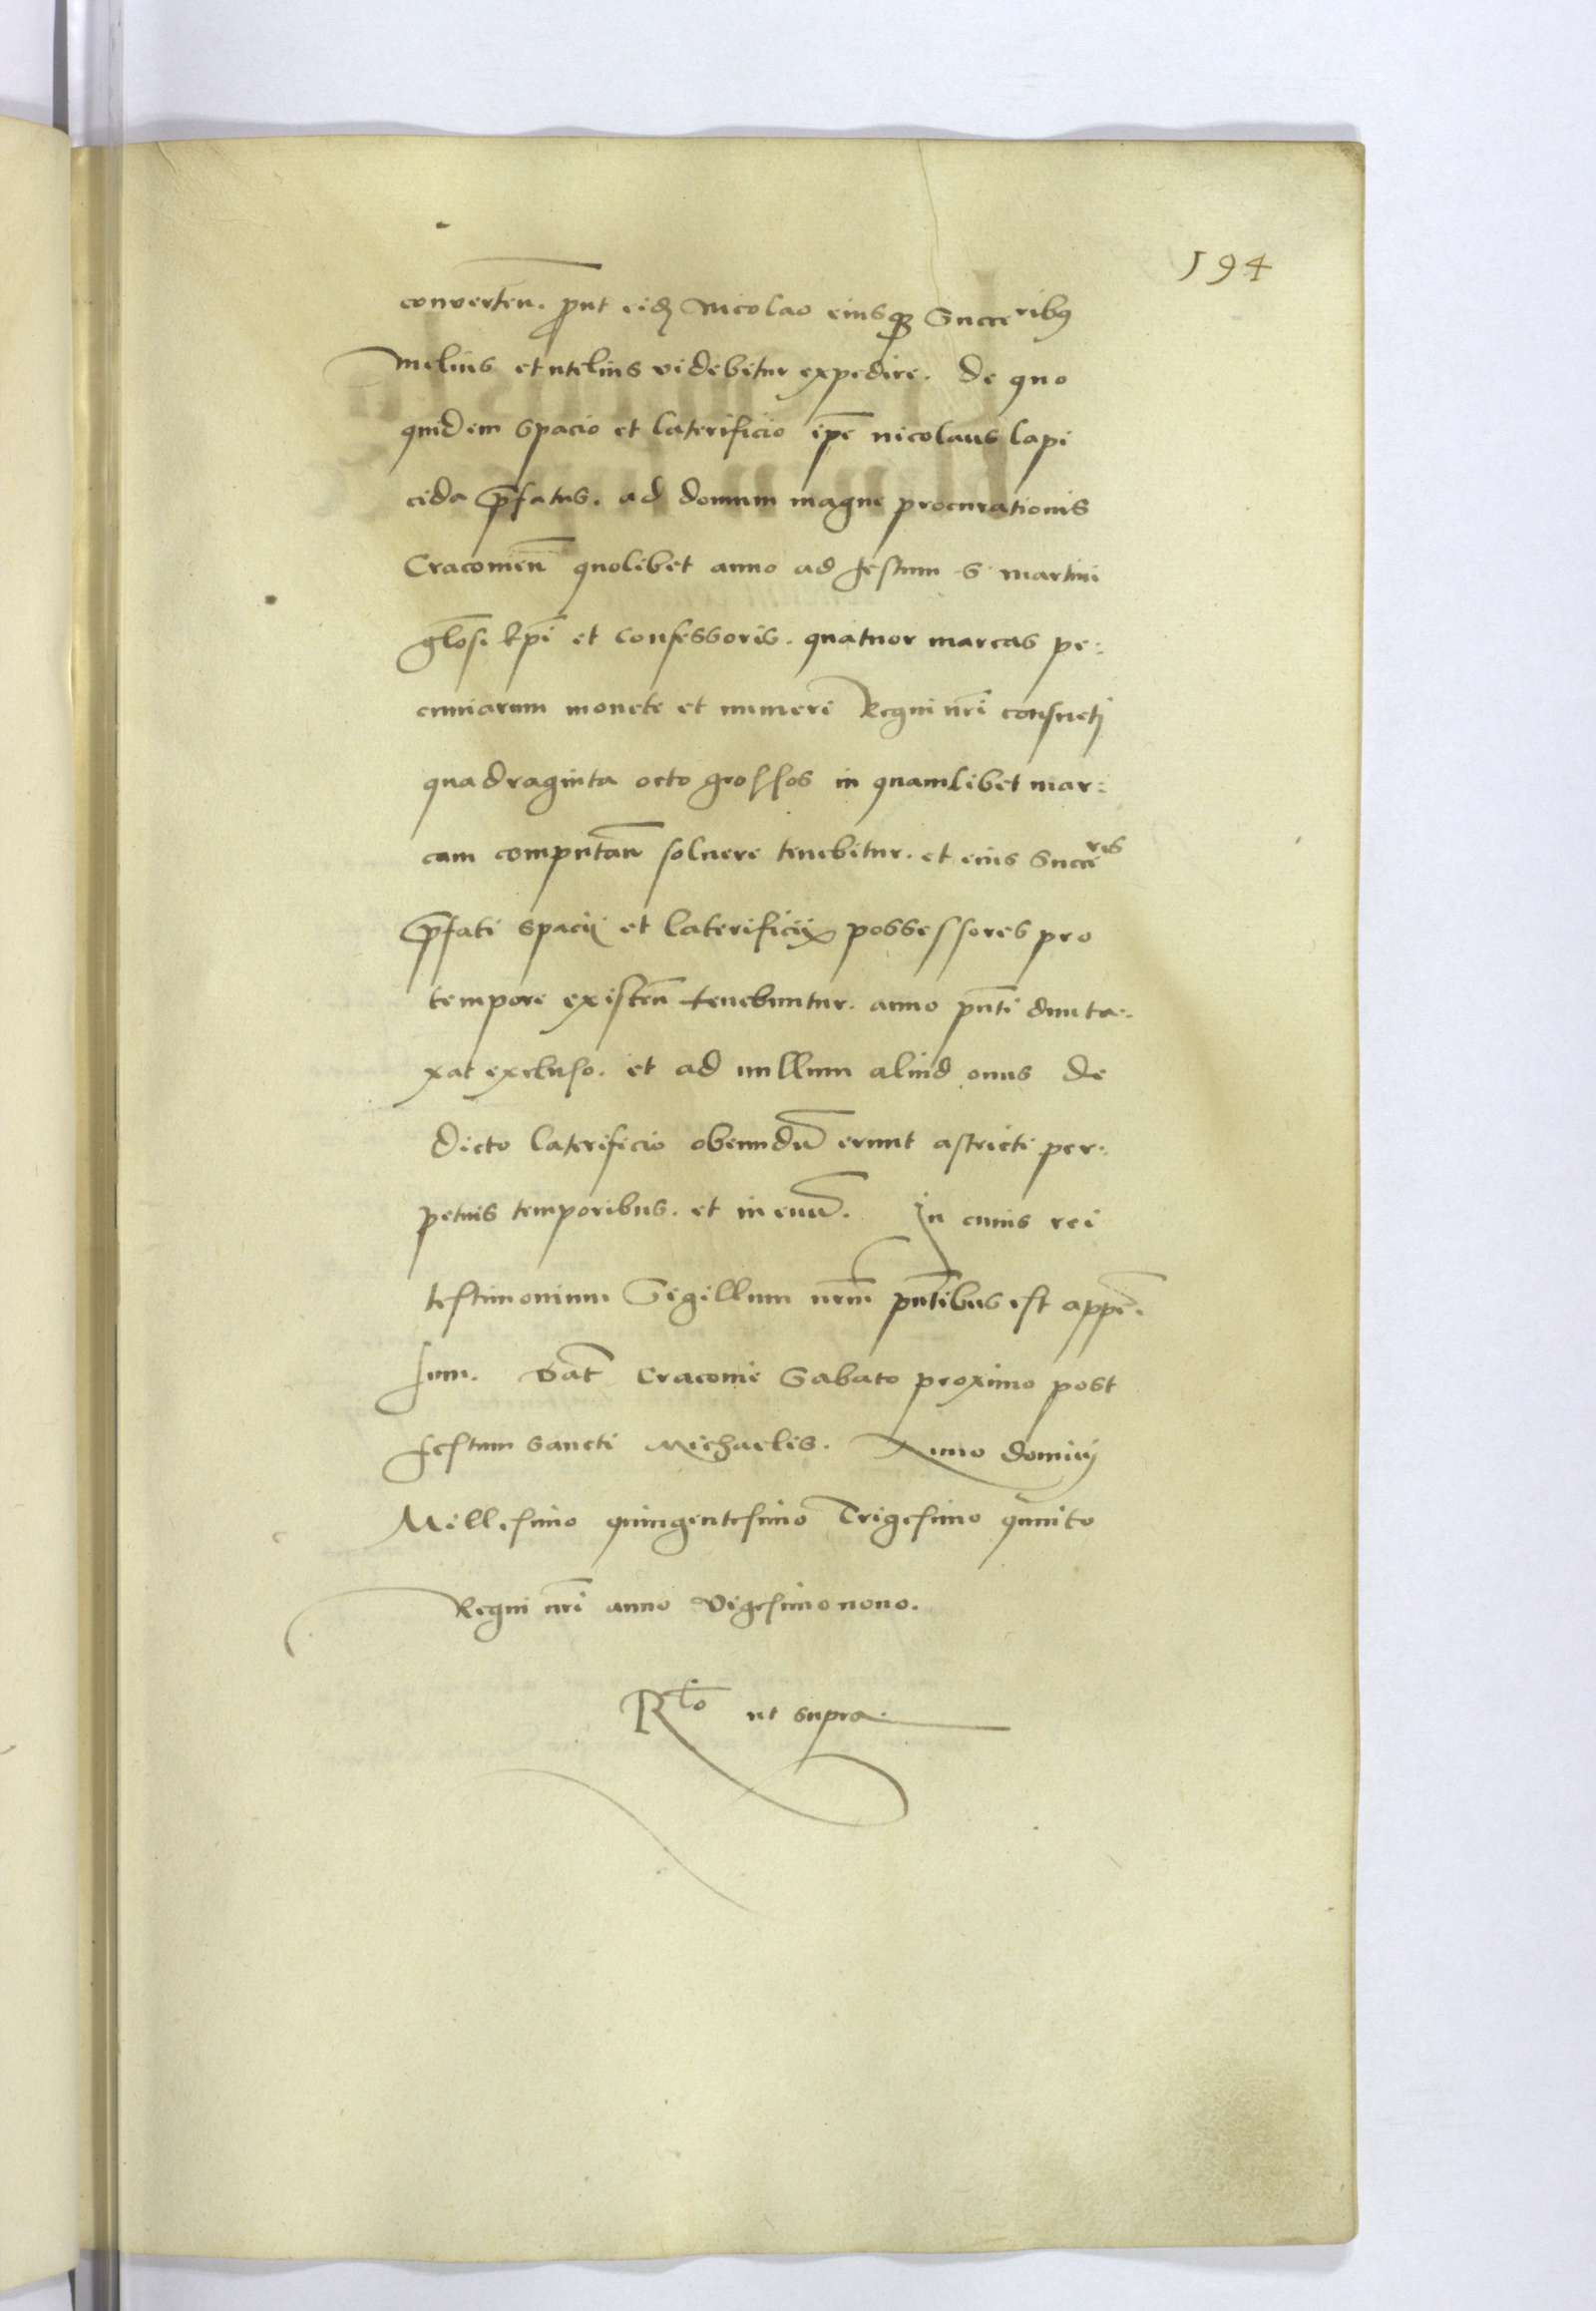 194
converten̄. put eidē Nicolao eiusqꝫ Succeribꝰ
Melius et utelius videbitur expedire. De quo
quidem spacio et laterificio ip̄e nicolaus lapi
cida p̄fatus. ad domum magne procurationis
Cracouien̄ quolibet anno ad festum S Martini
gl̄osi Ep̄i et Confessoris. quatuor marcas pe:
cuniarum monete et numeri Regni nr̄i consueti
quadraginta octo grossos in quamlibet mar:
cam computan̄ soluere tenebitur. et eius Succeres
p̄fati spacii et laterificii possessores pro
tempore existen̄ tenebuntur. anno pn̄ti dunta:
xat excluso. et ad nullum aliud onus de
dicto laterificio obeundū erunt astricti per:
petuis temporibus. et in euū. In cuius rei
testimonium Sigillum nrm̄ pn̄tibus est appē:
sum. Dat̄ Cracouie Sabato proximo post
festum sancti Michaelis. Anno dominj
Millesimo quingentesimo Trigesimo quinto
Regni nr̄i anno Vigesimonono.
Rᵗᵒ ut supra.